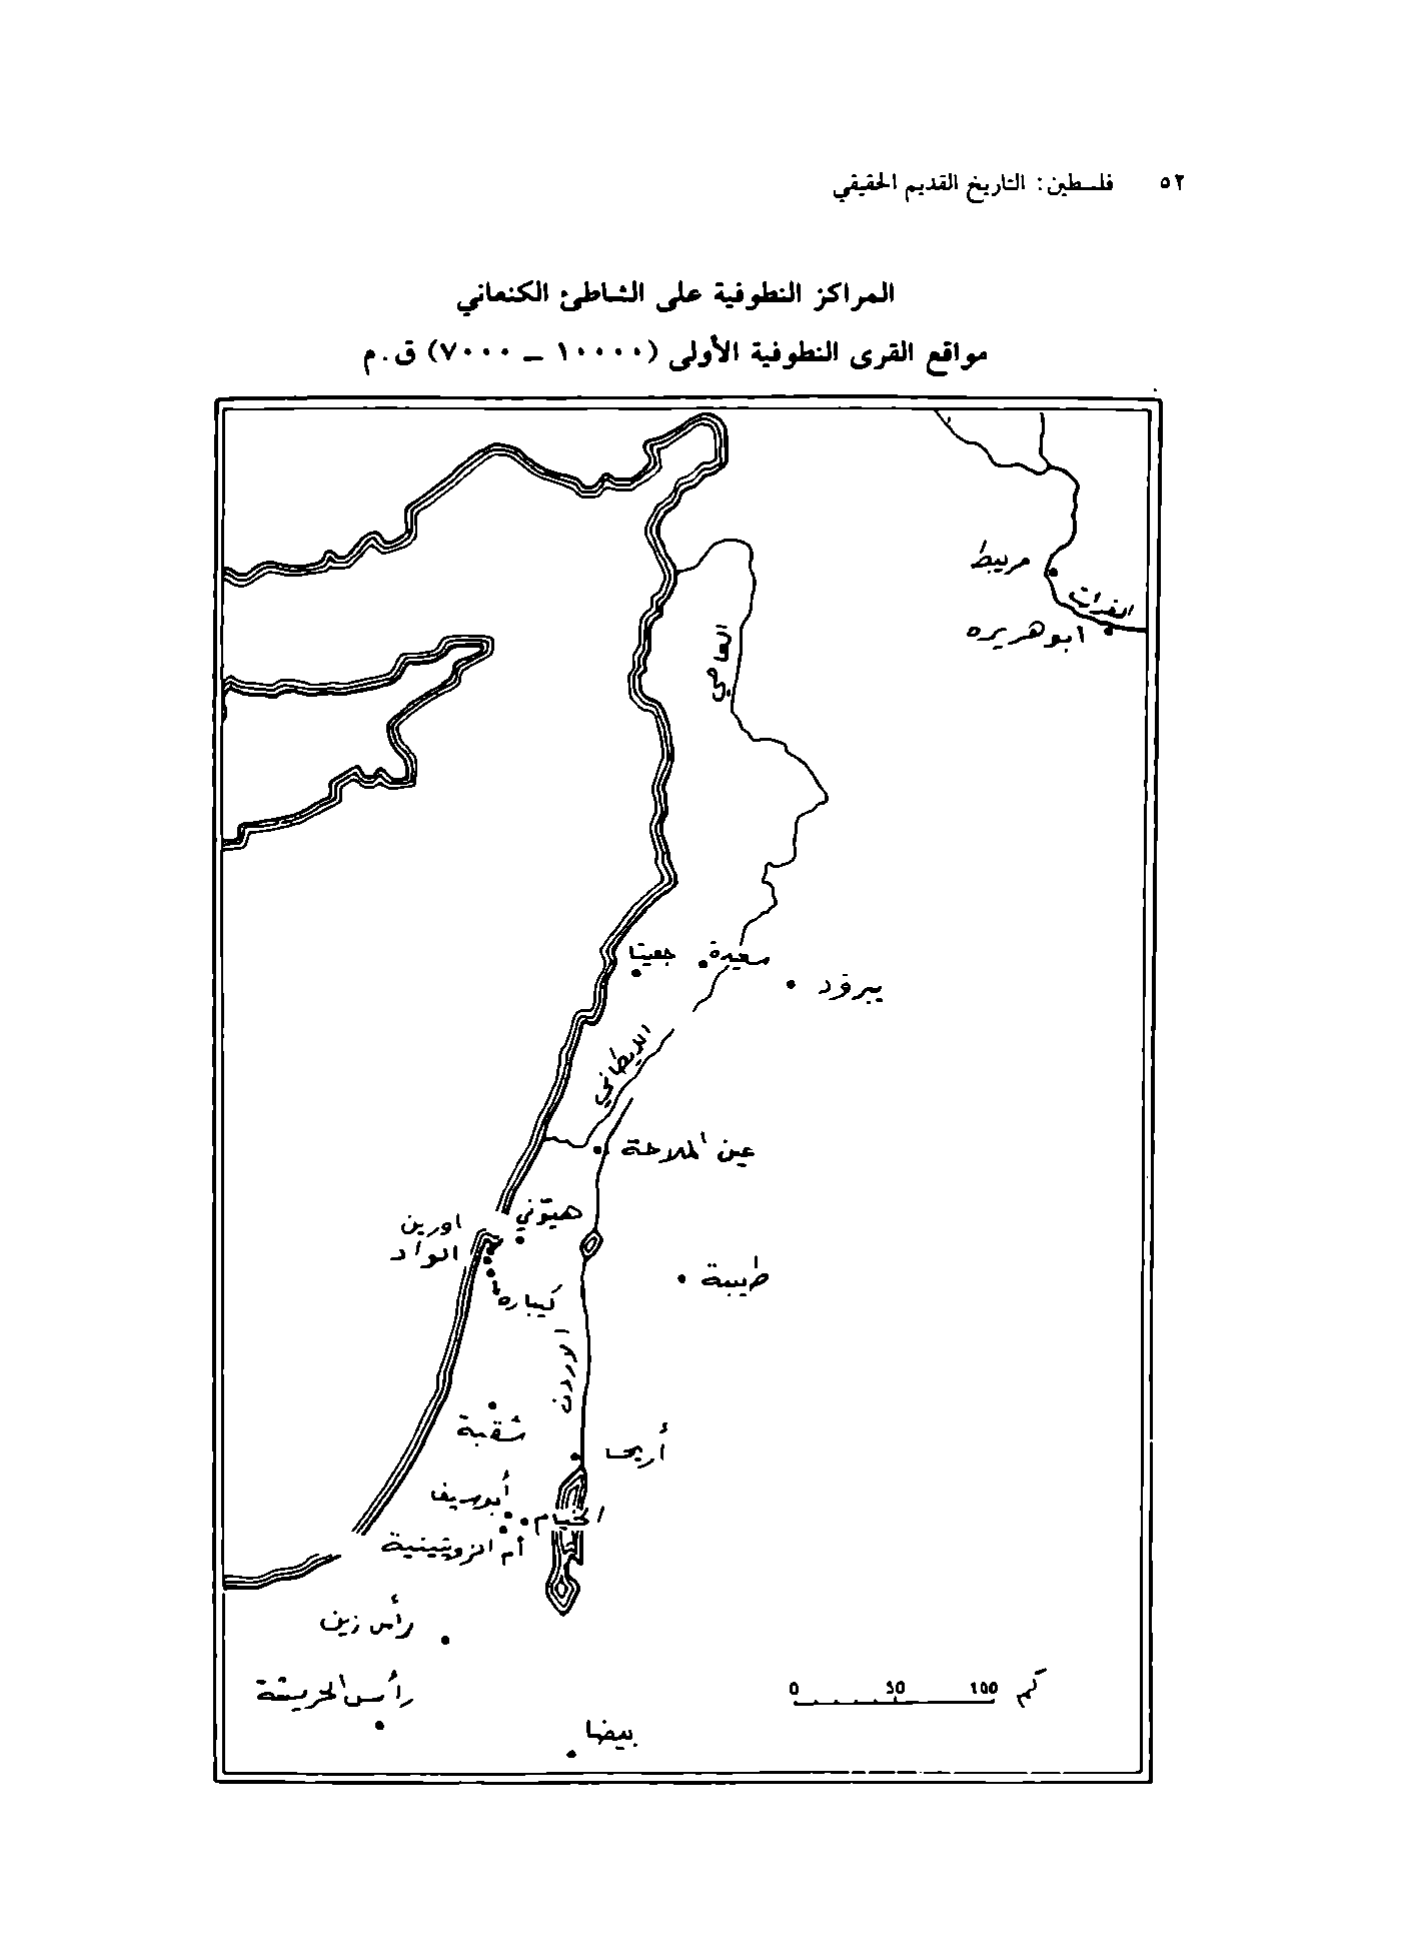 ٥٢ فلسطين: التاريخ القديم الحقيقي
المراكز النطوفية على الشاطئ الكنعاني
مواقع القرى النطوفية الأولى (١٠٠٠٠ – ٧٠٠٠) ق.م
مريبط
الفرات
ابو هريره
العاصي
جعيتا
سعيدة
يبرود
الليطاني
عين الملاحة
هيّوني
اورين
الواد
كيباره
طيبة
الاردن
شقبة
أريحا
أبو سيف
الخيام
أم الزويتينية
رأس زين
رأس الحريشة
بيضا
0 50 100 كم